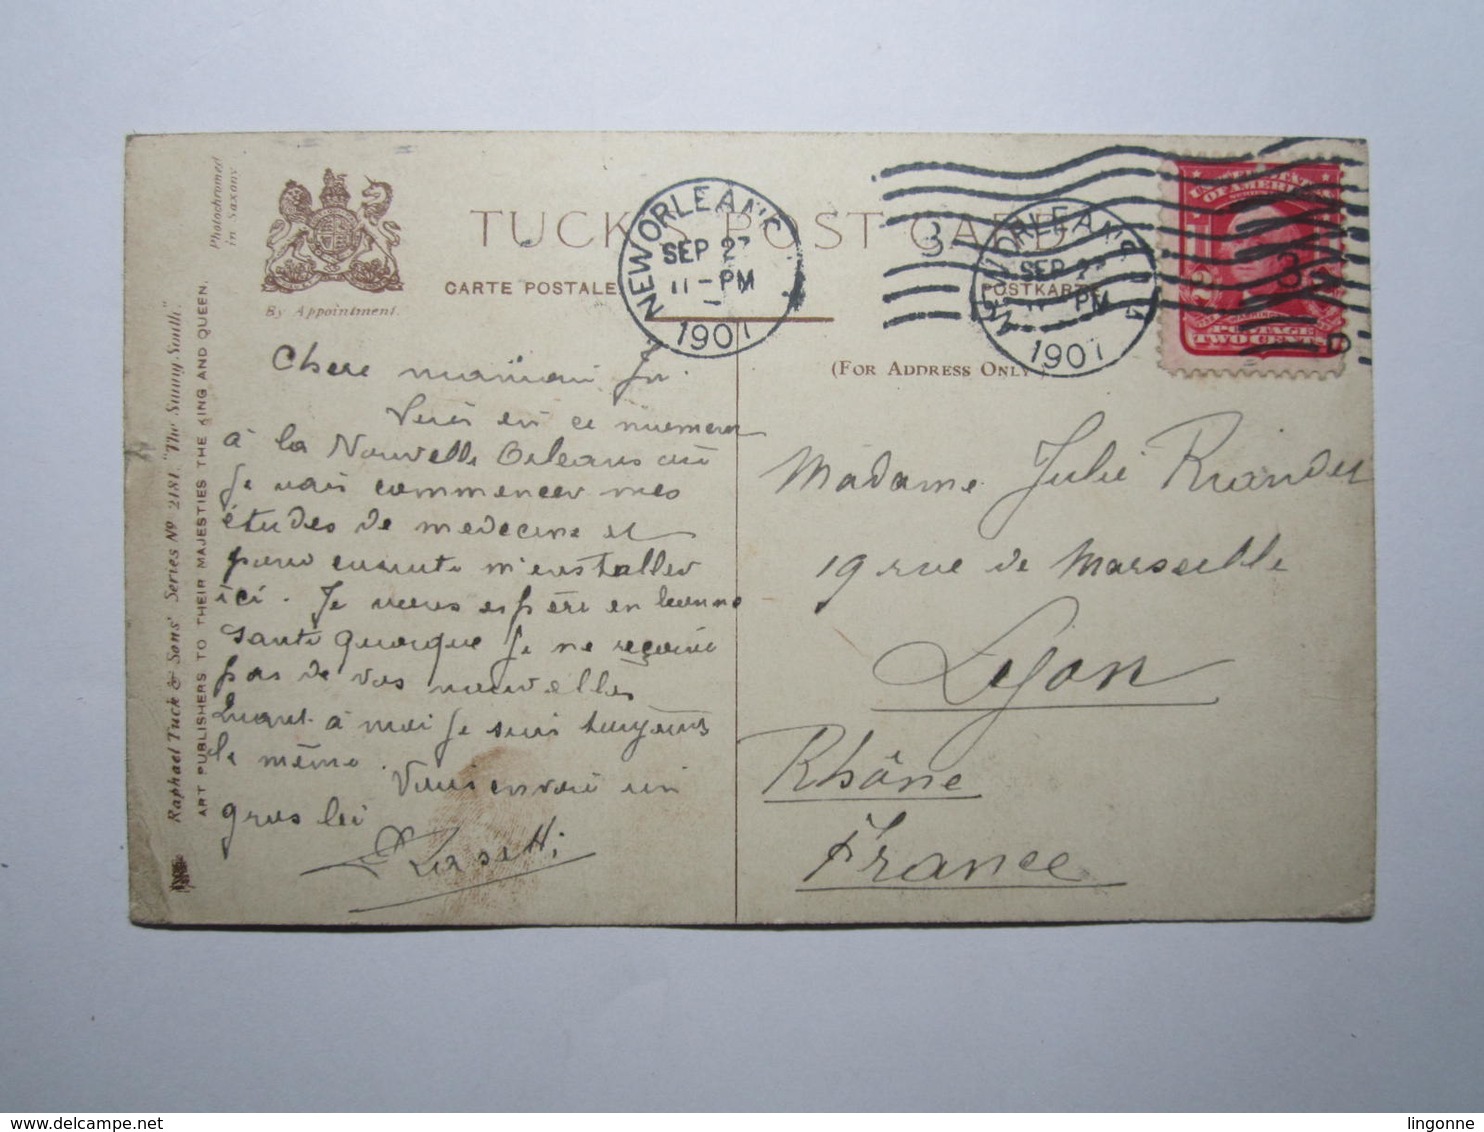 Photochromed
in Saxony
Raphael Tuck & Sons' Series Nº 2181. "The Sunny South."
ART PUBLISHERS TO THEIR MAJESTIES THE KING AND QUEEN.
By Appointment.
TUCK'S POST CARD
CARTE POSTALE
POSTKARTE
(FOR ADDRESS ONLY)
NEW ORLEANS
SEP 2
11-PM
1907
NEW ORLEANS
SEP 2
PM
1907
3
3
POSTAGE
TWO CENTS
Chere maman
en ce
à la Nouvelle Orleans où
je vais commencer mes
études de medecine et
pour ensuite m'installer
ici. Je vous espère en bonne
santé quoique je ne reçoive
pas de vos nouvelles
Quant à moi je suis toujours
le même.
Vous envoie un
gros
Madame Julie
19 rue de Marseille
Lyon
Rhône
France
lingonne
delcampe.net